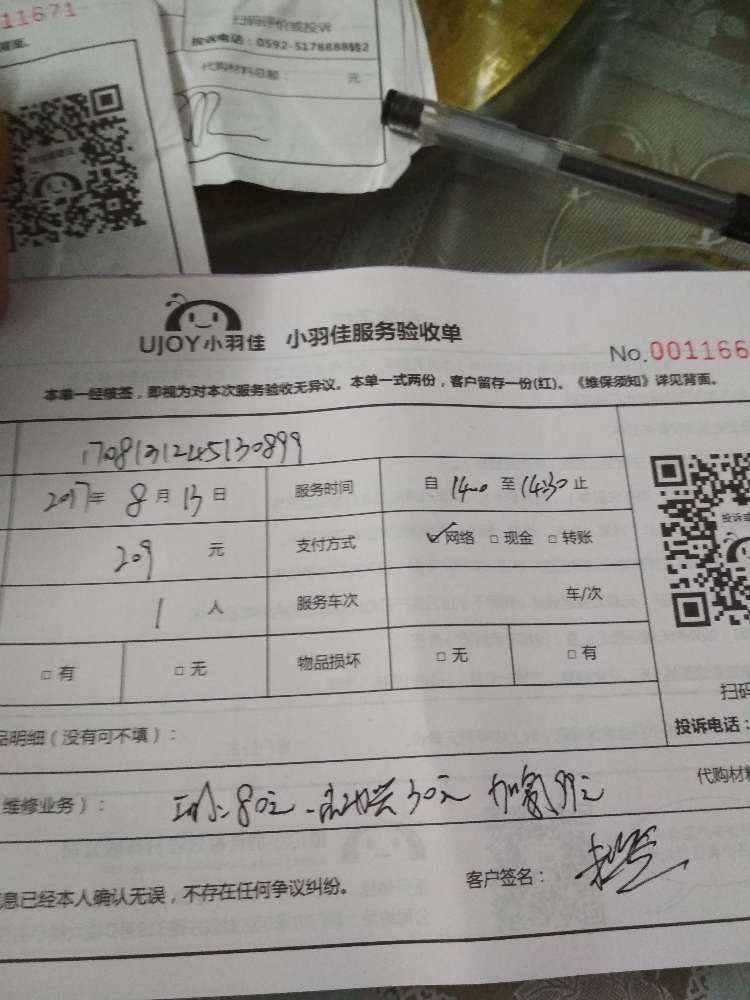 11671
背面。
扫码评价或投诉
投诉电话：0592-5178888转2
代购材料总额： 元
UJOY小羽佳 小羽佳服务验收单
No.001166
本单一经核签，即视为对本次服务验收无异议。本单一式两份，客户留存一份(红)。《维保须知》详见背面。
1708131245130899
2017年 8月 13日 服务时间 自 14:00 至 14:30 止
209 元 支付方式 ☑网络 □现金 □转账
1 人 服务车次 车/次
□有 □无 物品损坏 □无 □有
投诉或
扫码
品明细（没有可不填）：
投诉电话：
维修业务）：
80元 30元 加氟99元
代购材料
息已经本人确认无误，不存在任何争议纠纷。
客户签名：